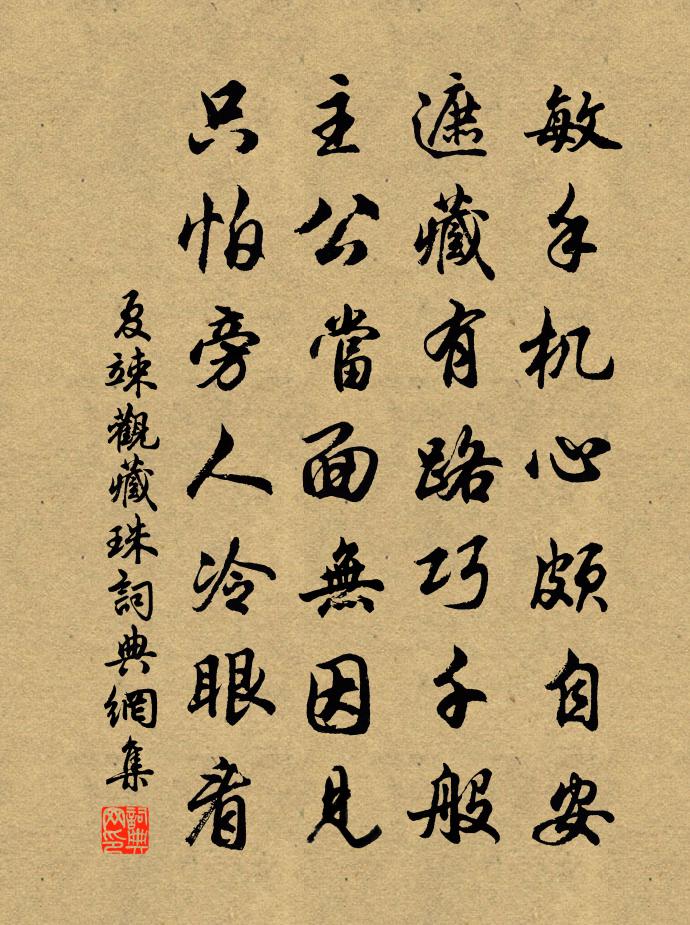 敏手机心頗自安
遮藏有路巧千般
主公當面無因見
只怕旁人冷眼看
夏竦觀藏珠詞典網集
詞典网印